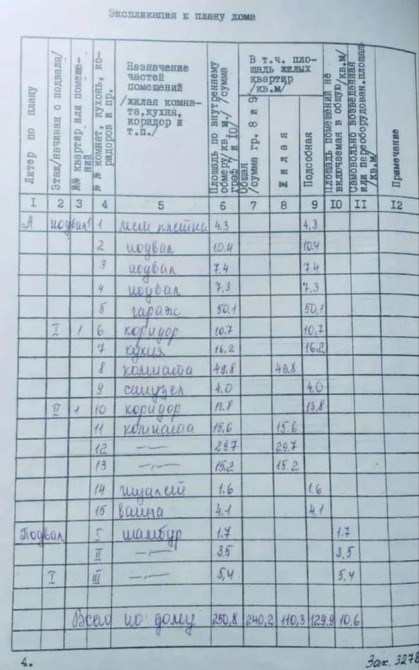 Экспликация к плану дома
Литер по плану
Этаж/начиная с подвала/
№№ квартир или помещений
№№ комнат, кухонь, коридоров и пр.
Назначение частей помещений /жилая комната, кухня, коридор и т.п./
Площадь по внутреннему обмеру/кв.м./ /сумма граф 7 и 10/
В т.ч. площадь жилых квартир /кв.м/
Общая /сумма гр. 8 и 9/
Жилая
Подсобная
Площадь помещений не включаемая в общую/кв.м/
Самовольно возведенная или переоборудован.площадь /кв.м/
Примечание
I 2 3 4 5 6 7 8 9 IO II I2
А подвал 1 1 лест клетка 4.3 4,3
2 подвал 10.4 10,4
3 подвал 7.4 7.4
4 подвал 7.3 7.3
5 гараж 50,1 50,1
I 1 6 коридор 10.7 10,7
7 кухня 16.2 16.2
8 комната 49,8 49,8
9 санузел 4.0 4.0
II 1 10 коридор 13.8
11 комната 15.6 15.6
12 —"— 29.7 29.7
13 —"— 15.2 15.2
14 туалет 1.6 1.6
15 ванна 4.1 4.1
Подвал I тамбур 1.7 1.7
II —"— 3.5 3,5
I III —"— 5,4 5,4
Всего по дому 250,8 240,2 110,3 129.9 10,6
4.
Зак. 3278